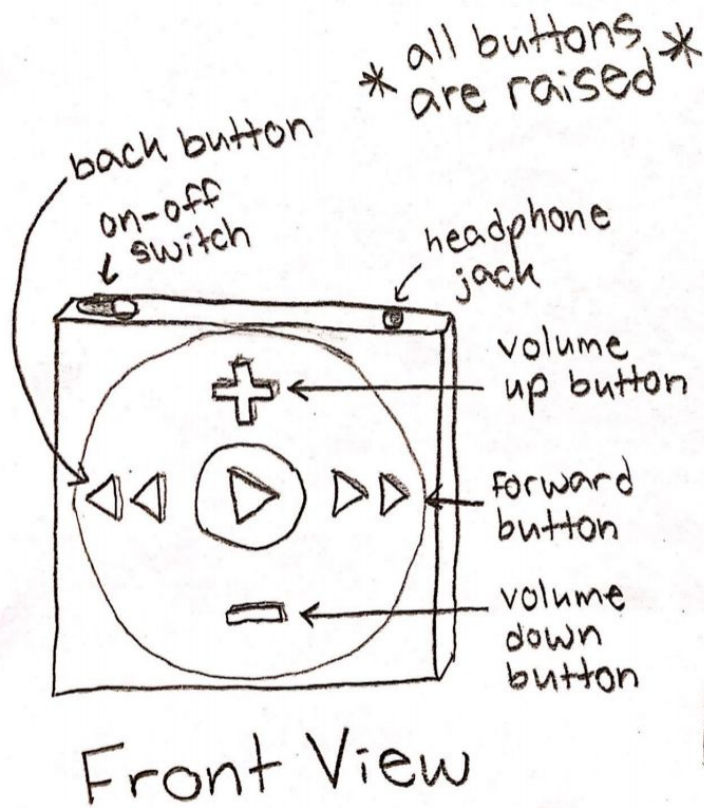 * all buttons *
are raised
back button
on-off
switch
headphone
jack
volume
up button
forward
button
volume
down
button
Front View